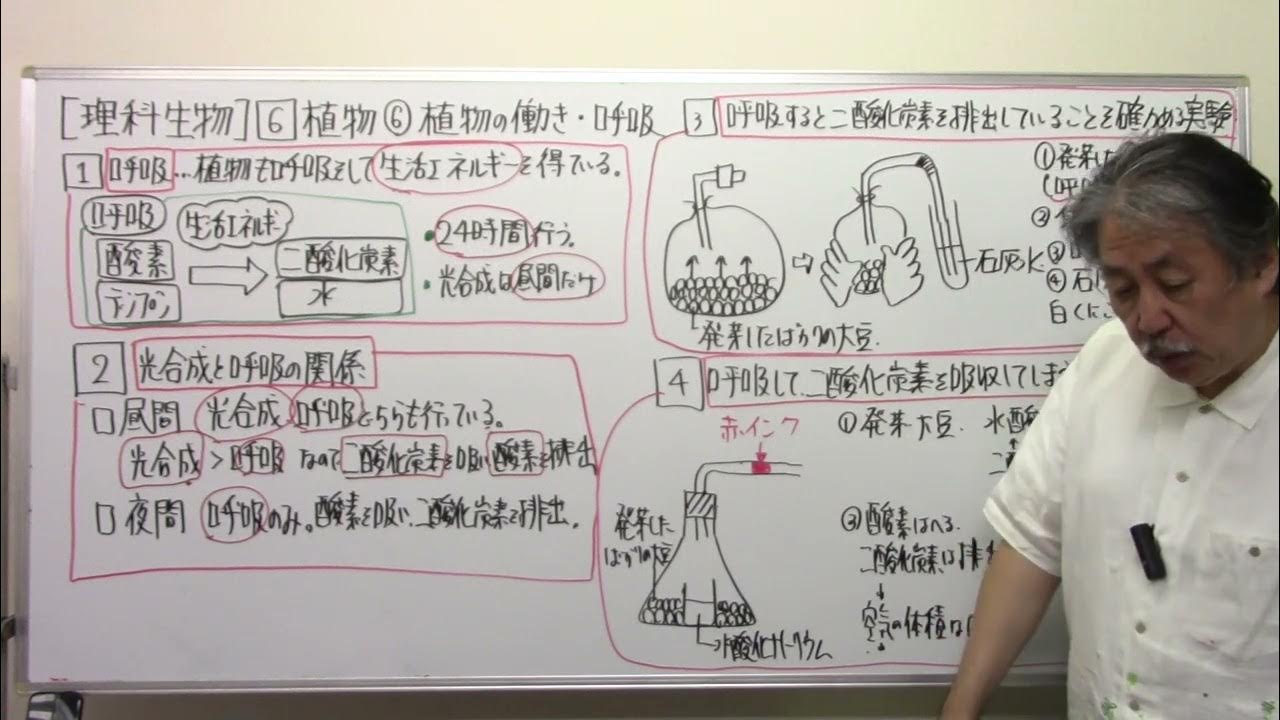 [理科生物] 6 植物⑥ 植物の働き・呼吸
1 呼吸…植物も呼吸をして生活エネルギーを得ている。
呼吸
生活エネルギー
酸素
デンプン
二酸化炭素
水
・24時間行う。
・光合成は昼間だけ
2 光合成と呼吸の関係
□昼間 光合成 呼吸どちらも行っている。
光合成>呼吸 なので二酸化炭素を吸い酸素を排出
□夜間 呼吸のみ。酸素を吸い、二酸化炭素を排出。
3 呼吸すると二酸化炭素を排出していることを確かめる実験
①発芽した
②
③
④石
白くに
石灰水
発芽したばかりの大豆.
4 呼吸して、二酸化炭素を吸収してしま
赤インク
①発芽大豆. 水酸
発芽した
ばかりの大豆
水酸化ナトリウム
③酸素はへる.
二酸化炭素は排出
空気の体積